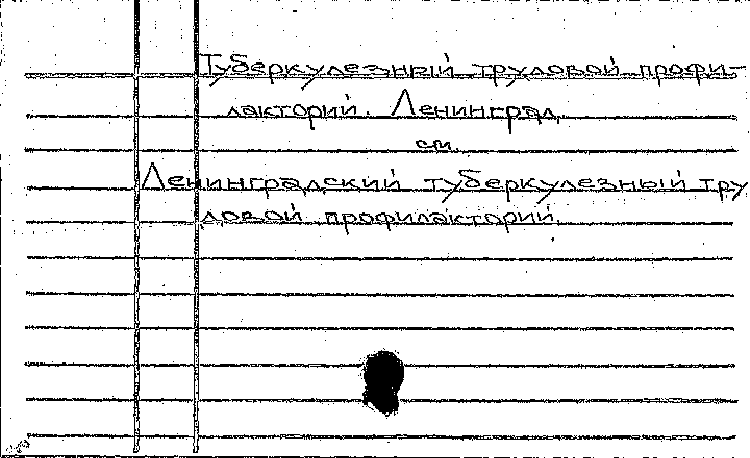 Туберкулезный трудовой профи-
лакторий. Ленинград.
см.
Ленинградский туберкулезный тру
довой профилакторий.